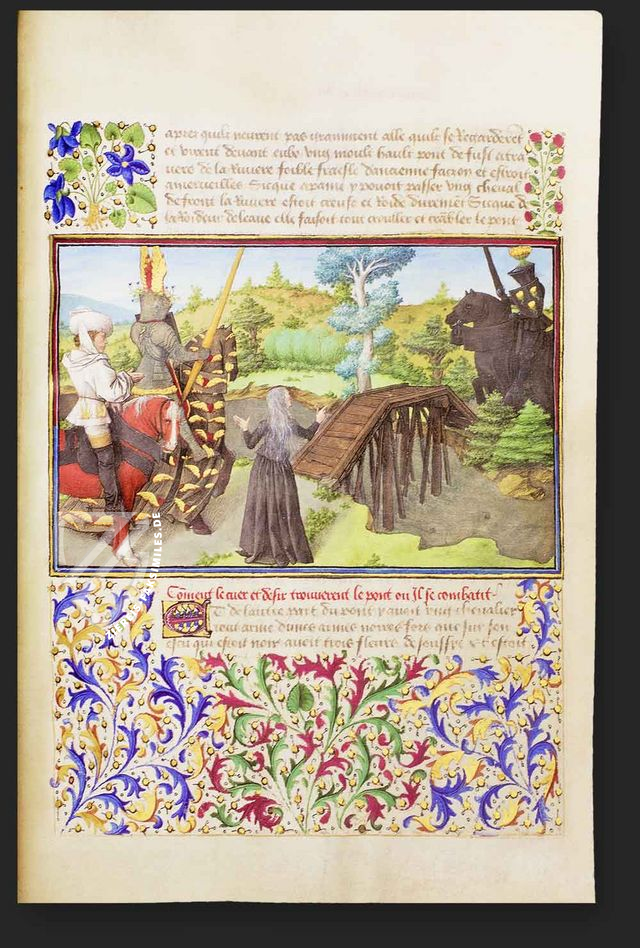 apres quilz neurent pas grantment alle quilz se regarderent
et virent devant eulx vng moult hault pont de fust a tra
uers de la riuiere foible fraesle dancienne facion et estroit
a merueilles Sicque a paine y pouoit passer vng cheual
de front la riuiere estoit creuse et Roide durement Sicque
la Roideur de leaue elle faisoit tout crouller et trābler le pont
Cōment le cuer et desir trouuerent le pont ou Jl se combatit
Et de lautre part du pont y auoit vng cheualier
tout arme dunes armes noires fors que sur son
escu qui estoit noir auoit trois fleurs de souffie Et estoit
FACSIMILES.DE